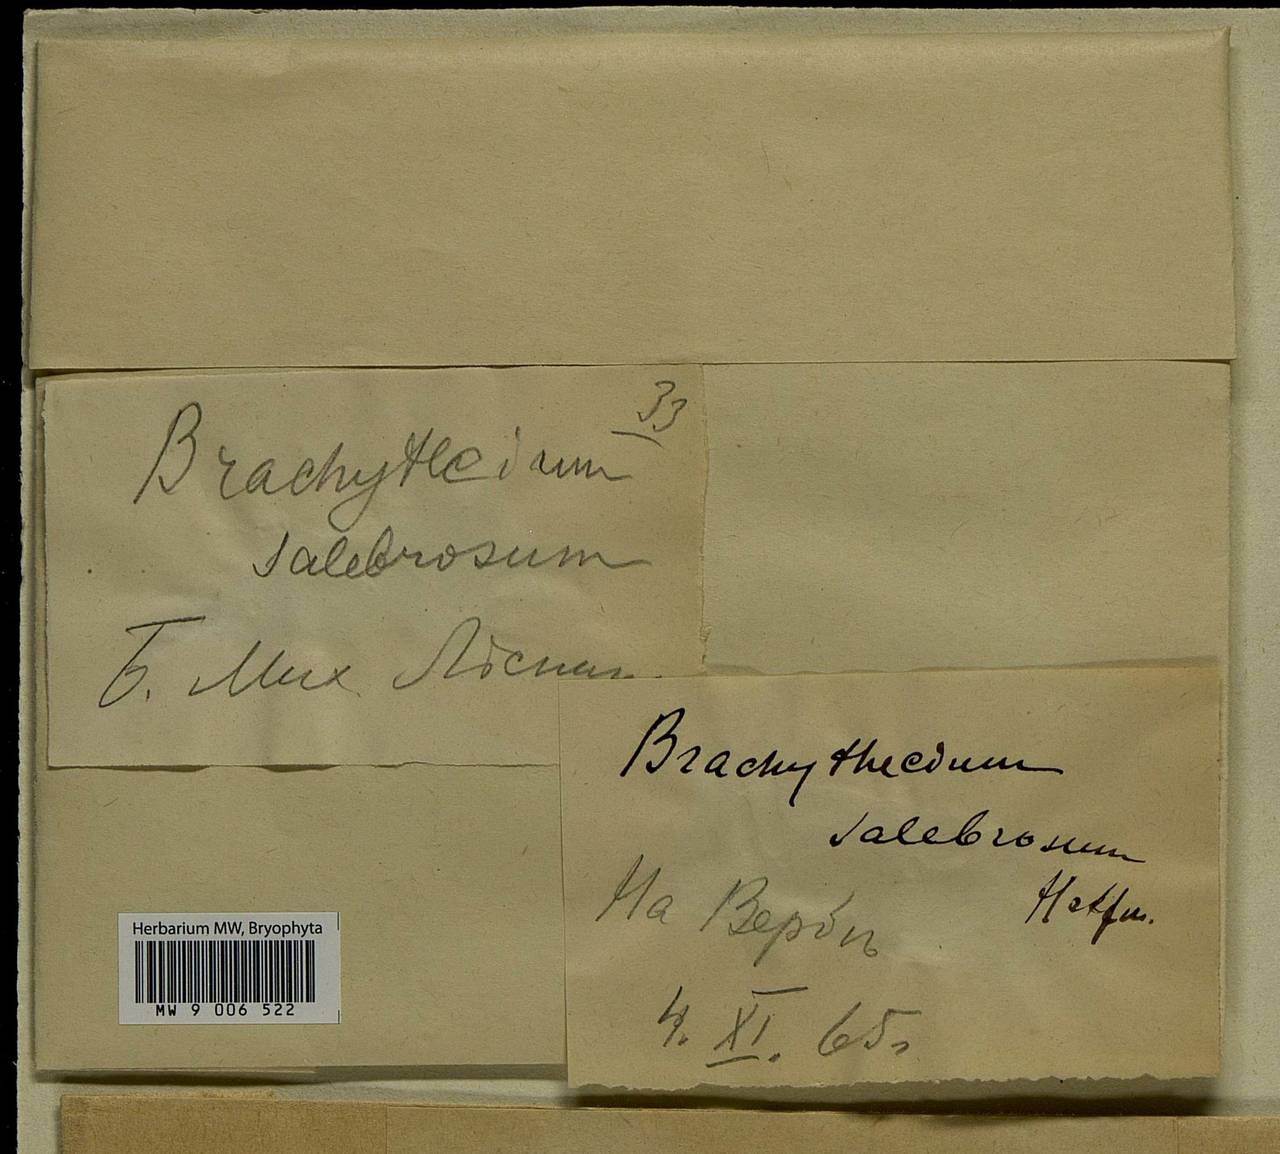 33
Brachythecium
salebrosum
Б. Мих
Brachythecium
salebrosum
На Вербе
4. XI. 65г
Herbarium MW, Bryophyta
MW 9 006 522